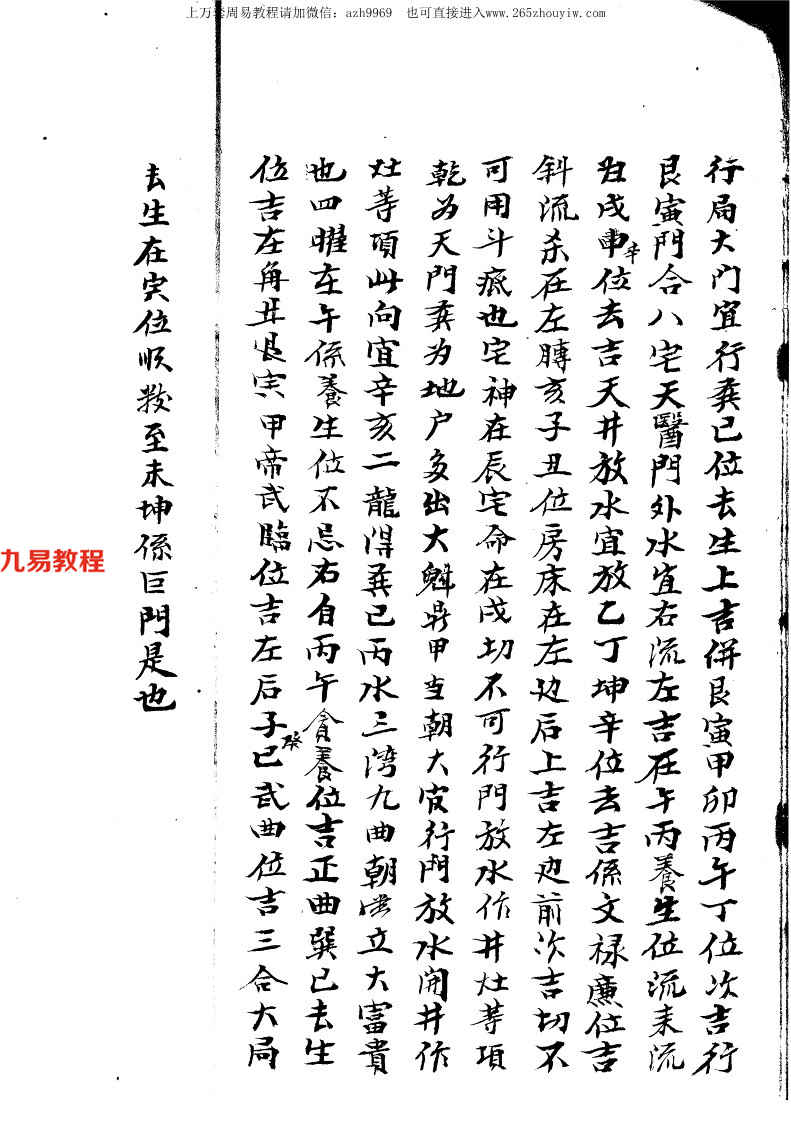 上万套周易教程请加微信：azh9969　也可直接进入www.265zhouyiw.com
行局大门宜行巽巳位去生上吉併艮寅甲卯丙午丁位次吉行
艮寅門合八宅天醫門外水宜右流左吉在午丙養生位流来流
归戌申辛位去吉天井放水宜放乙丁坤辛位去吉係文禄廉位吉
斜流杀在左膊亥子丑位房床在左边后上吉左边前次吉切不
可用斗底也宅神在辰宅命在戌切不可行門放水作井灶等項
乾为天門巽为地户多出大魁鼎甲当朝大官行門放水開井作
灶等項此向宜辛亥二龍得巽巳丙水三湾九曲朝堂立大富貴
也四曜在午係養生位不忌右自丙午貪養位吉正曲巽巳去生
位吉左角丑艮寅甲帝武臨位吉左后子癸已武曲位吉三合大局
去生在寅位順数至未坤係巨門是也
九易教程